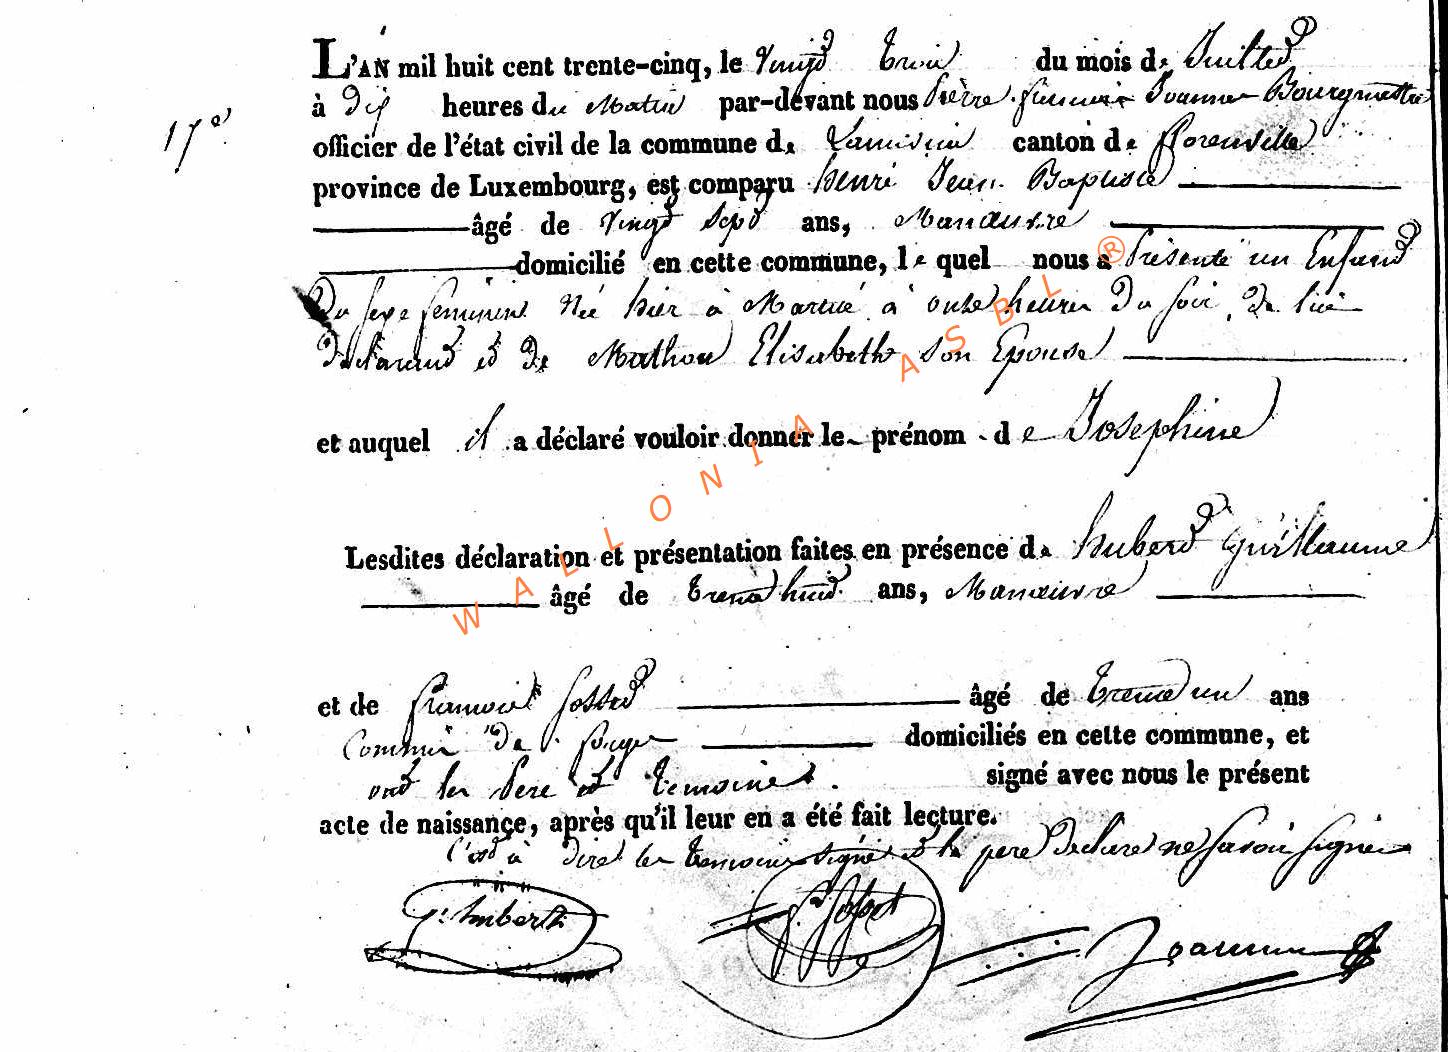 L'AN mil huit cent trente-cinq, le Vingd Trois du mois de Juilled
17e
à Dix heures du Matin par-devant nous Pièrre Joannes Bourgmestre
officier de l'état civil de la commune de canton de florenville
province de Luxembourg, est comparu henri Jean Baptiste
âgé de vingd Sepd ans, Manœuvre
domicilié en cette commune, le quel nous a Présenté un Enfand
Du sexe feminin Né hier à Martué à onze heures Du soir, De lui
Déclarand ed De Mathou Elisabeth Son Epouse
et auquel il a déclaré vouloir donner le prénom de Josephine
Lesdites déclaration et présentation faites en présence de huberd Guillaume
âgé de trente huid ans, Manœuvre
et de francois fossed âgé de trente un ans
Commis De forges domiciliés en cette commune, et
ond les Pere ed temoins signé avec nous le présent
acte de naissance, après qu'il leur en a été fait lecture.
C'esd à dire les temoins signé ed le pere Declare ne savoir signer
g: hubert f. fosset Joannes
WALLONIA ASBL ®